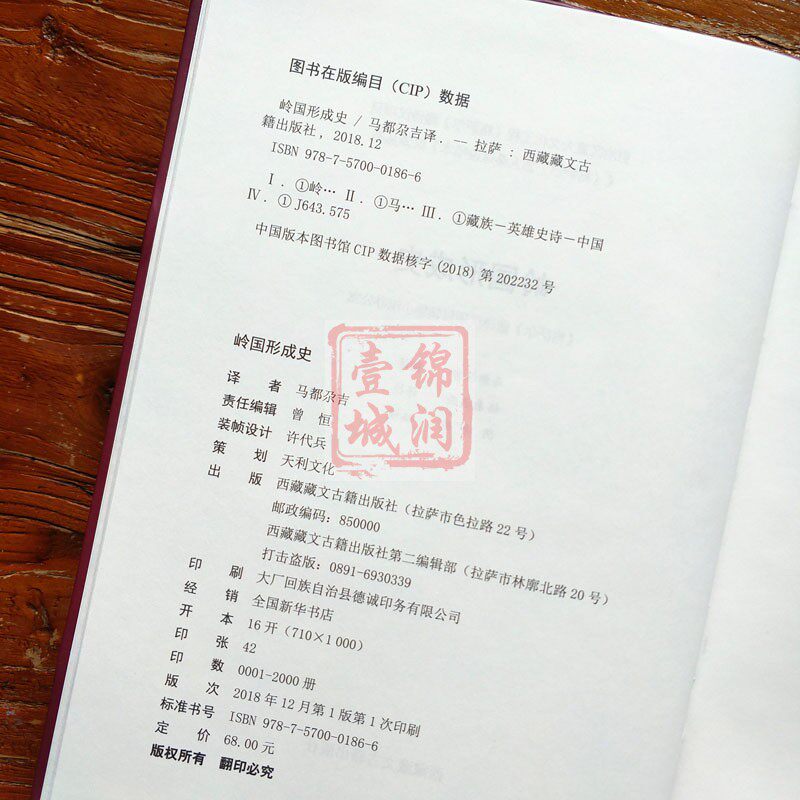 图书在版编目（CIP）数据
岭国形成史 / 马都尕吉译. — 拉萨 : 西藏藏文古
籍出版社, 2018.12
ISBN 978-7-5700-0186-6
Ⅰ. ①岭… Ⅱ. ①马… Ⅲ. ①藏族－英雄史诗－中国
Ⅳ. ①J643.575
中国版本图书馆 CIP 数据核字 (2018) 第 202232 号
岭国形成史
译 者 马都尕吉
责任编辑 曾 恒
装帧设计 许代兵
策 划 天利文化
出 版 西藏藏文古籍出版社（拉萨市色拉路 22 号）
邮政编码：850000
西藏藏文古籍出版社第二编辑部（拉萨市林廓北路 20 号）
打击盗版：0891-6930339
印 刷 大厂回族自治县德诚印务有限公司
经 销 全国新华书店
开 本 16 开 (710×1 000)
印 张 42
印 数 0001-2000 册
版 次 2018 年 12 月第 1 版第 1 次印刷
标准书号 ISBN 978-7-5700-0186-6
定 价 68.00 元
版权所有 翻印必究
锦润
壹城